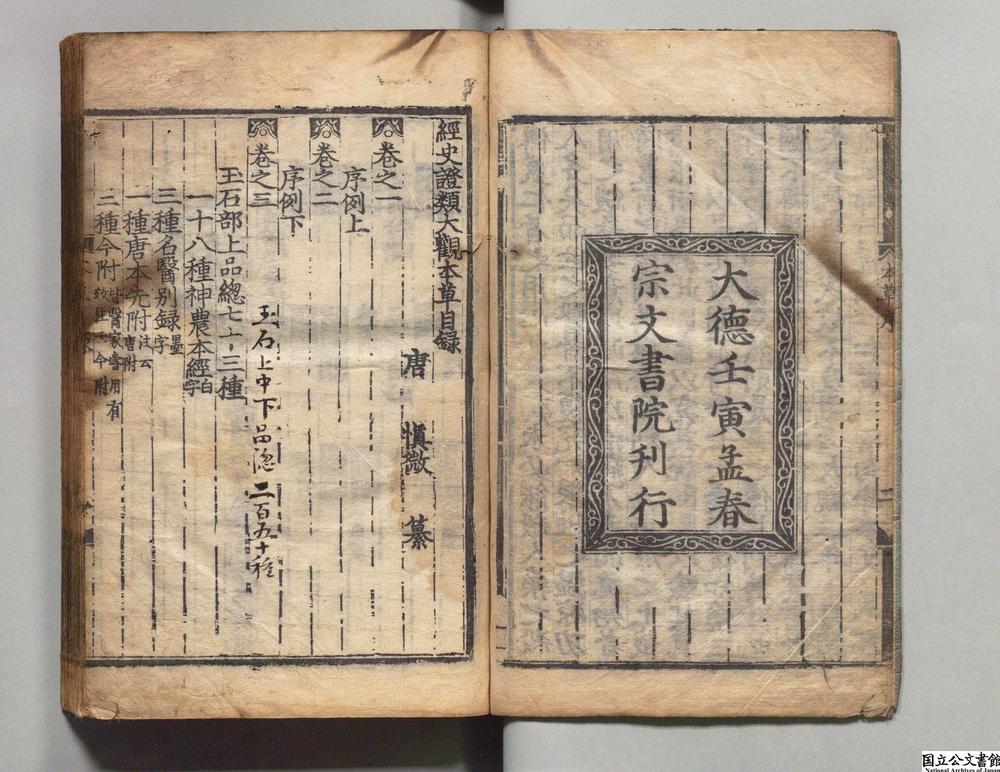 大德壬寅孟春
宗文書院刊行
經史證類大觀本草目錄
唐 慎微 纂
卷之一
序例上
卷之二
序例下
卷之三
玉石上中下品総二百五十種
玉石部上品總七十三種
一十八種神農本經白字
三種名醫別録墨字
一種唐本先附注云唐附
二種今附皆醫家嘗用有
国立公文書館
National Archives of Japan